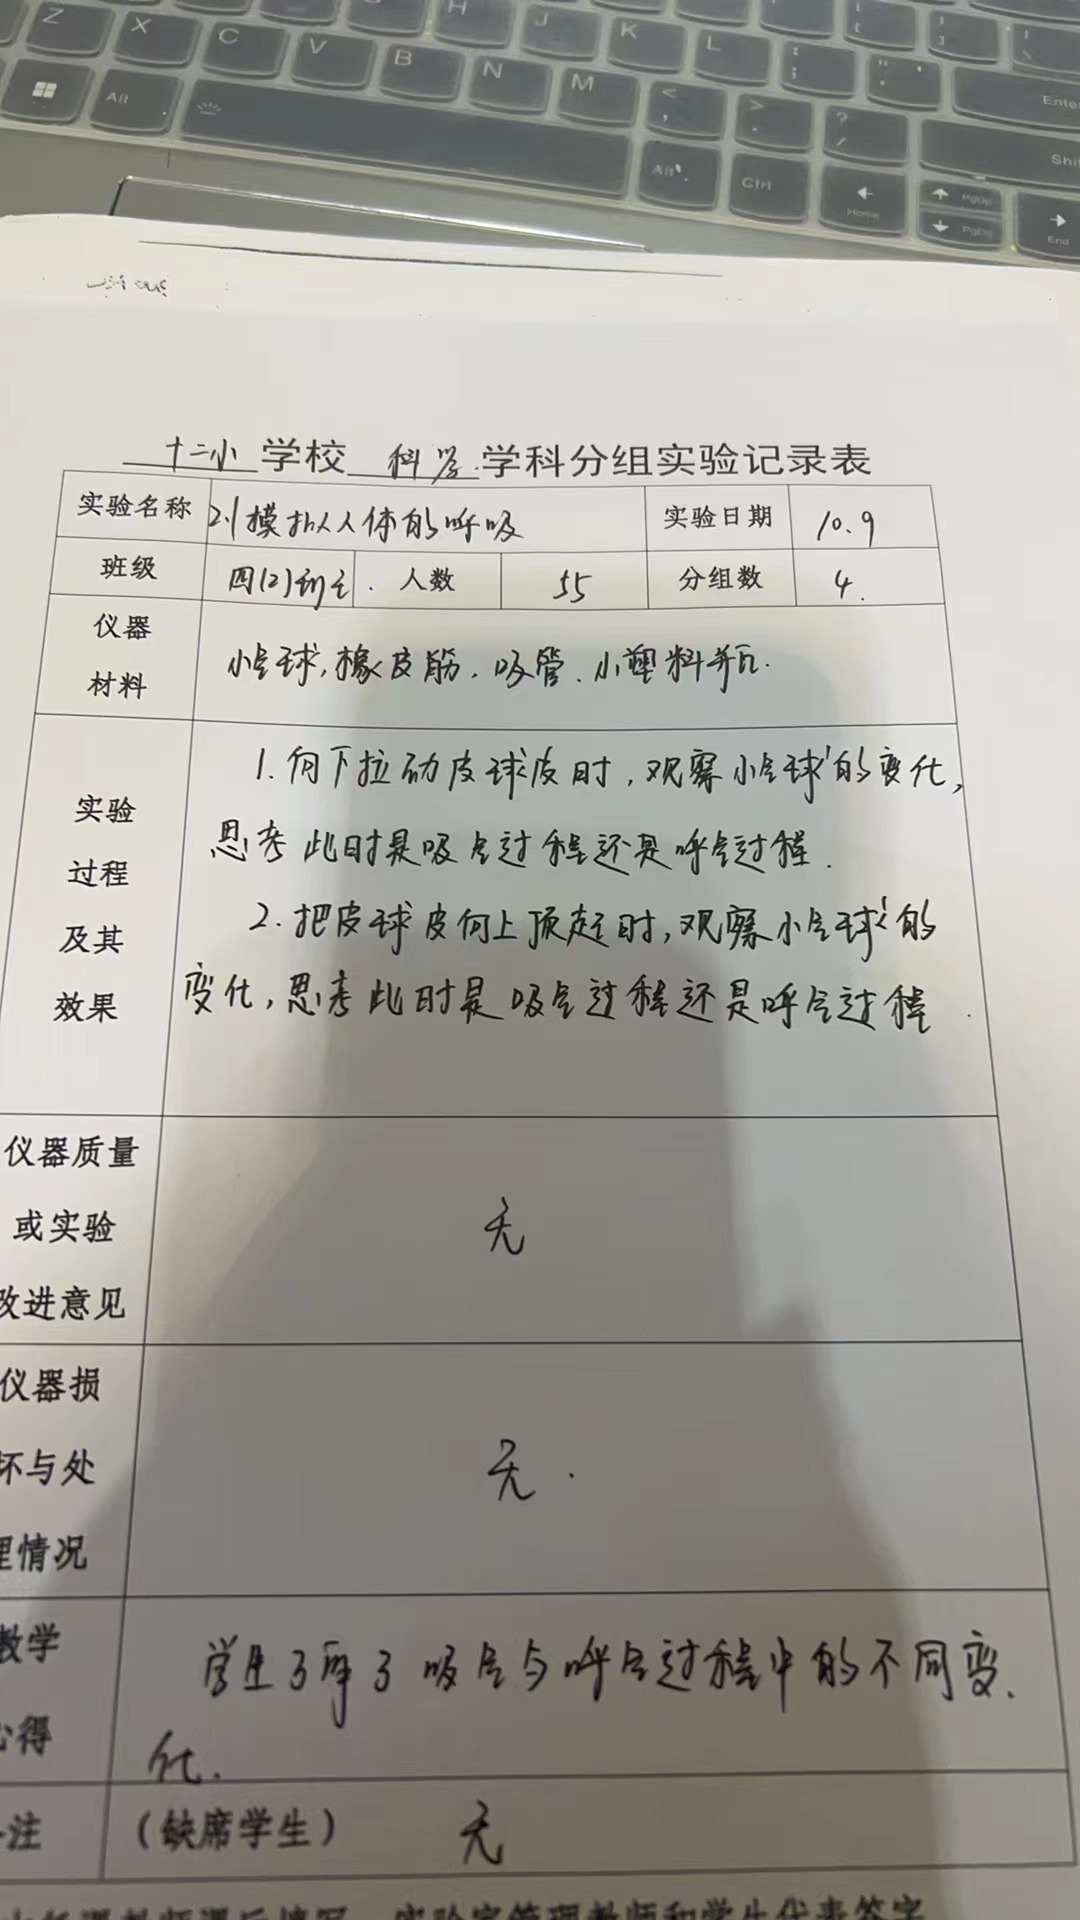 Z X C V B H J K L N M
Alt Alt Ctrl Home PgUp PgDn End Enter Shift
十二小 学校 科学 学科分组实验记录表
实验名称 2.1模拟人体的呼吸 实验日期 10.9
班级 四(2) 人数 55 分组数 4.
仪器
材料
小气球,橡皮筋.吸管.小塑料瓶.
实验
过程
及其
效果
1.向下拉动皮球皮时,观察小气球的变化,
思考此时是吸气过程还是呼气过程.
2.把皮球皮向上顶起时,观察小气球的
变化,思考此时是吸气过程还是呼气过程.
仪器质量
或实验
改进意见
无
仪器损
坏与处
理情况
无.
教学
心得
学生了解了吸气与呼气过程中的不同变
化.
注 (缺席学生) 无